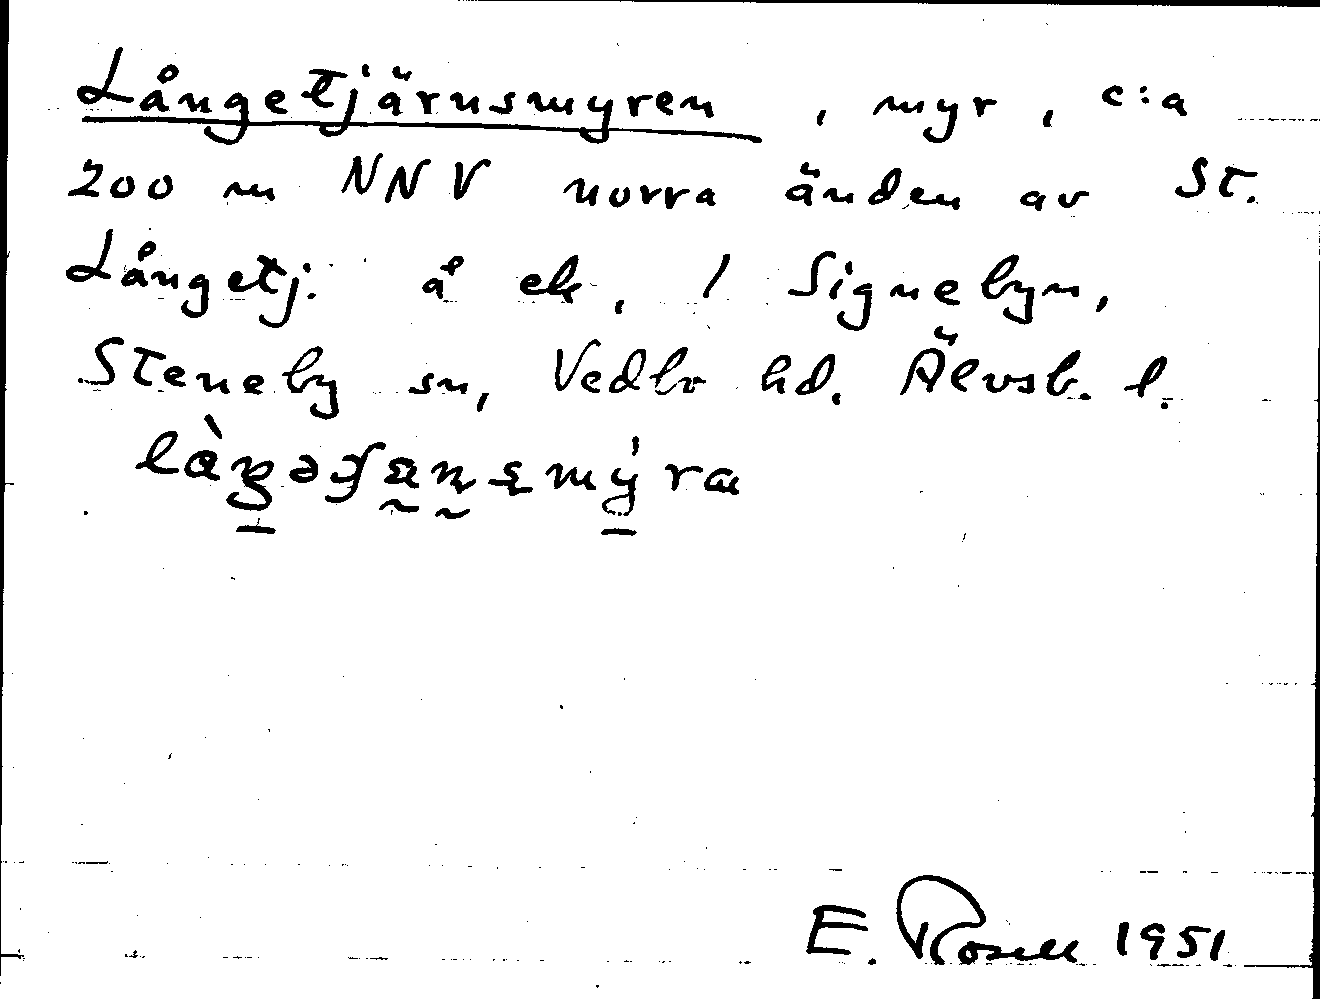 Långetjärnsmyren, myr, c:a
200 m NNV norra änden av St.
Långetj. å ek, / Signebyn,
Steneby sn, Vedbo hd. Älvsb. l.
E. Rosell 1951